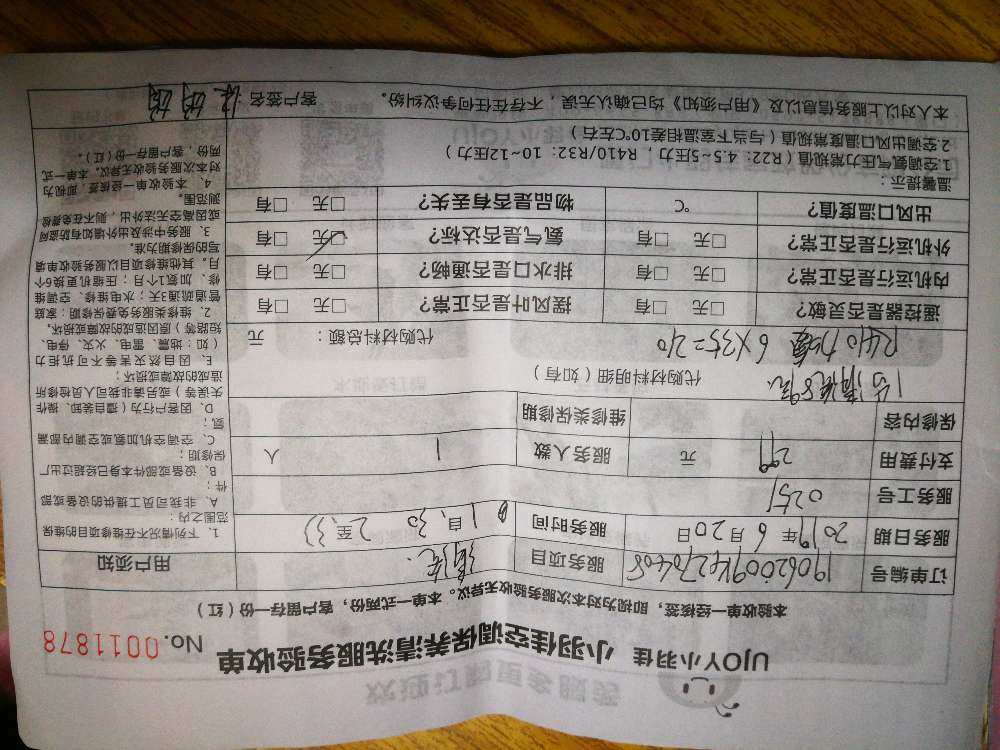 UJOY小羽佳 小羽佳空调保养清洗服务验收单 No. 0011878
本验收单一经接签，即视为对本次服务验收无异议。本单一式两份，客户留存一份（红）
订单编号 服务项目 清洗 用户须知
服务日期 2019年6月20日 服务时间 自 1:30 至
服务工号 0251
支付费用 299 元 服务人数 1 人
保修内容 维修类保修期
代购材料明细（如有）
R410加氟 6×35=210 代购材料总额： 元
遥控器是否灵敏？ □无 □有 摆风叶是否正常？ □无 □有
内机运行是否正常？ □无 □有 排水口是否通畅？ □无 □有
外机运行是否正常？ □无 □有 氨气是否达标？ □无 □有
出风口温度值？ ℃ 物品是否有丢失？ □无 □有
温馨提示：
1空调氨气压力常规值（R22：4.5~5压力，R410/R32：10~12压力）
2空调出风口温度常规值（与当下室温相差10℃左右）
本人对以上服务信息以及《用户须知》均已确认无误，不存在任何争议纠纷。 客户签名：
1、下列情况不在维修项目的维保
范围之内：
A、非我司员工提供的设备或部
件；
B、设备或部件本身已经超过出厂
保修期；
C、空调空机加氨或空调内部漏
氨；
D、因客户行为（擅自装卸、操作
失误等）或另请非我司人员检修所
造成的故障或损坏；
E、因自然灾害等不可抗拒力
（如：地震、雷电、火灾、停电、
短路等）原因造成的故障或损坏。
2、维修类服务免费保修期：家庭
管道疏通3天；水电维修、空调维
修、加氨1个月；压缩机更换6个
月。其他维修项目以服务验收单填
写的保修期为准。
3、服务中涉及出外墙如有防盗网
或因高空无法外出，则不在免费检
测范围。
4、本验收单一经接签，即视为
对本次服务验收无异议。本单一式
两份，客户留存一份（红）。